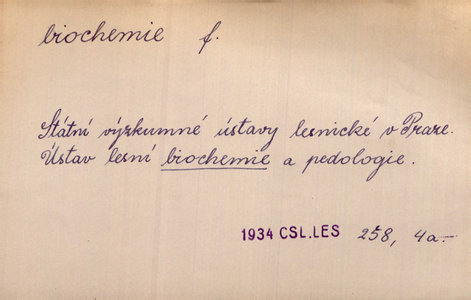 biochemie f.
Státní výzkumné ústavy lesnické v Praze.
Ústav lesní biochemie a pedologie.
1934 CSL.LES 258, 4a.-